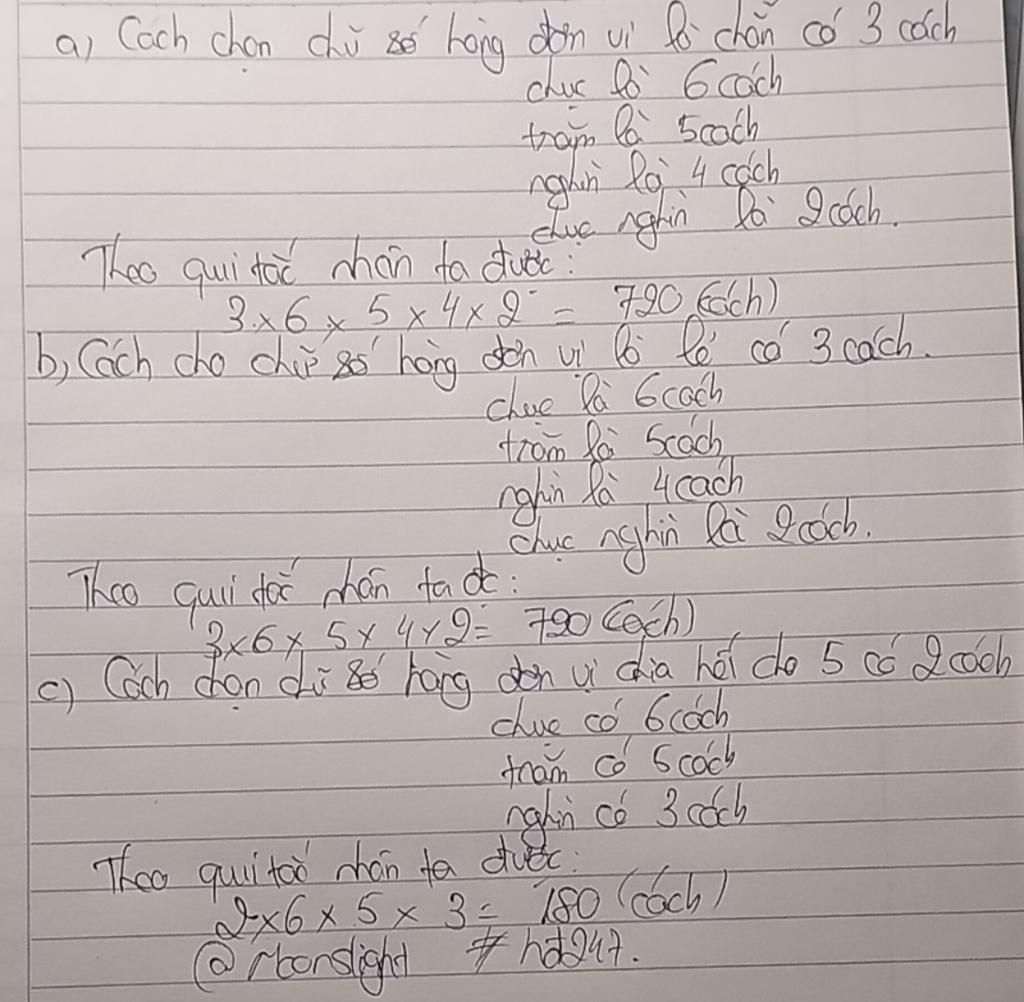 a) Cách chọn chữ số hàng đơn vị là chẵn có 3 cách
chục là 6 cách
trăm là 5 cách
nghìn là 4 cách
chục nghìn là 2 cách.
Theo qui tắc nhân ta được:
3 x 6 x 5 x 4 x 2 = 720 (cách)
b, Cách cho chữ số hàng đơn vị là lẻ có 3 cách.
chục là 6 cách
trăm là 5 cách
nghìn là 4 cách
chục nghìn là 2 cách.
Theo qui tắc nhân ta đc:
3 x 6 x 5 x 4 x 2 = 720 (cách)
c) Cách chọn chữ số hàng đơn vị chia hết cho 5 có 2 cách
chục có 6 cách
trăm có 5 cách
nghìn có 3 cách
Theo qui tắc nhân ta được:
2 x 6 x 5 x 3 = 180 (cách)
@ # hd247.